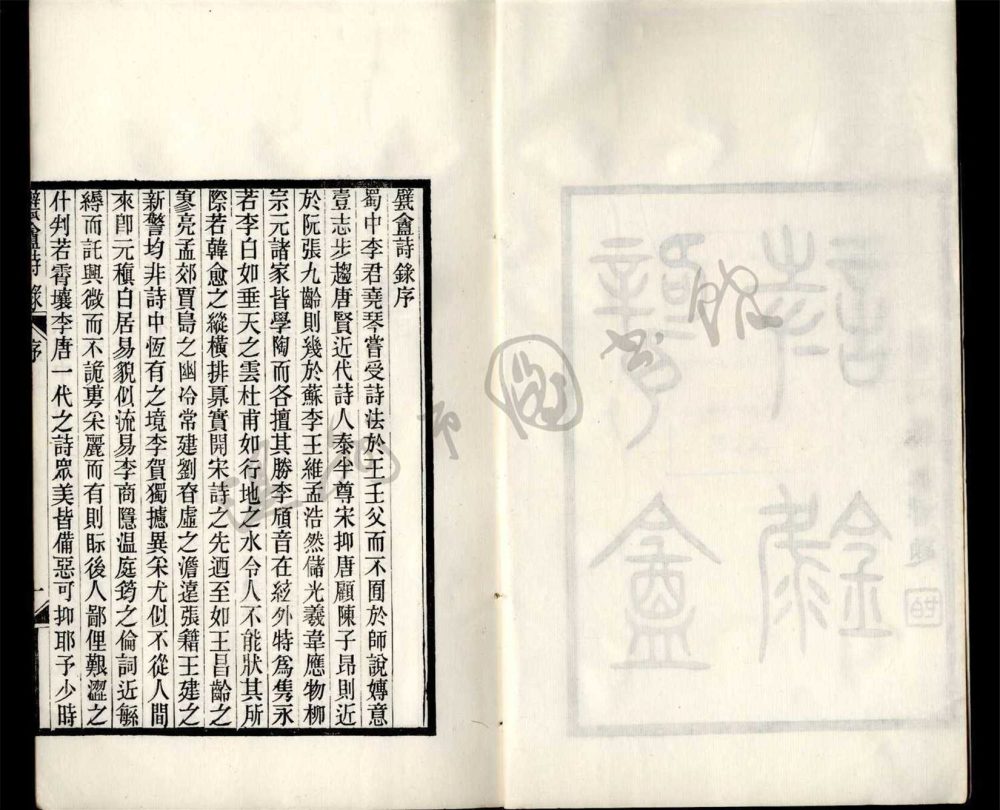 甓盦詩錄序
蜀中李君堯琴嘗受詩法於王壬父而不囿於師說嫥意
壹志步趨唐賢近代詩人泰半尊宋抑唐顧陳子昂則近
於阮張九齡則幾於蘇李王維孟浩然儲光羲韋應物柳
宗元諸家皆學陶而各擅其勝李頎音在絃外特爲雋永
若李白如垂天之雲杜甫如行地之水令人不能狀其所
際若韓愈之縱橫排奡實開宋詩之先迺至如王昌齡之
寥亮孟郊賈島之幽冷常建劉昚虛之澹遠張籍王建之
新警均非詩中恆有之境李賀獨摅異采尤似不從人間
來卽元稹白居易貌似流易李商隱温庭筠之倫詞近緐
縟而託興微而不詭敷采麗而有則眎後人鄙俚艱澀之
什判若霄壤李唐一代之詩眾美皆備惡可抑耶予少時
甓盦詩錄
序
一
圖